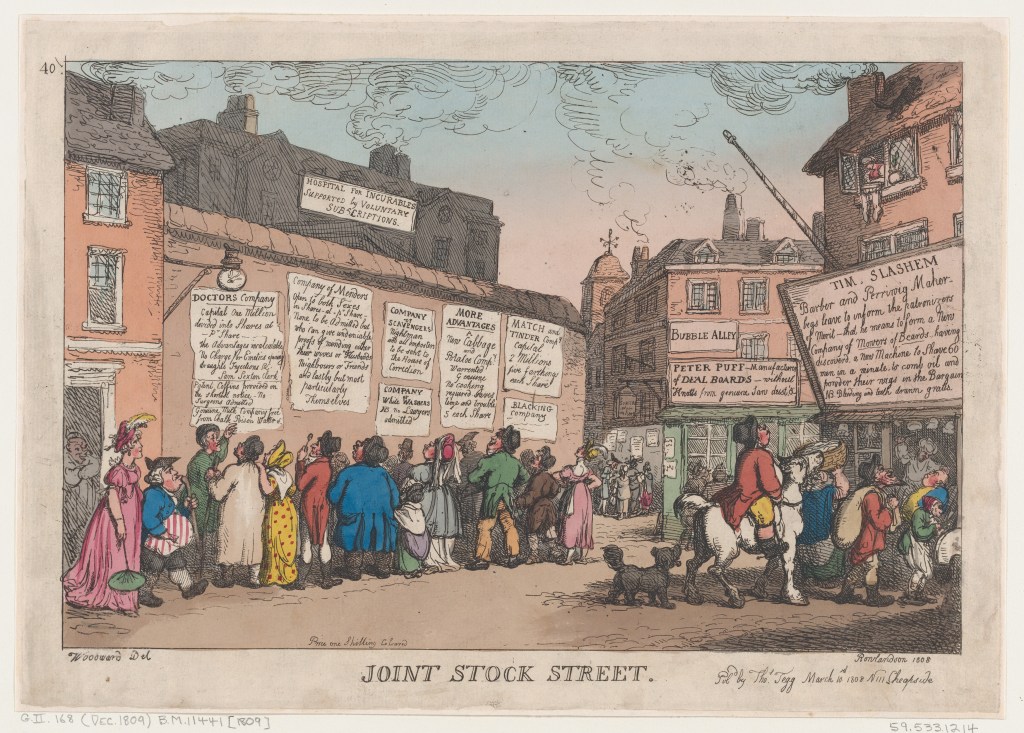 40
HOSPITAL FOR INCURABLES
Supported by VOLUNTARY
SUBSCRIPTIONS.
DOCTORS Company
Capital One Million
divided into Shares at
P. Share
the Advantages
No Charge for
draughts Injections &c
Sam Sexton Clerk
Patent Coffins provided on
the shortest notice - No
Surgeons admitted
Genuine Milk Company free
from Chalk Poison Water &c
Company of Menders
Open to both Sexes
in Shares at P. Share
None to be Admitted but
who can give undeniable
proofs of mending either
their wives or Husbands
Neighbours or Friends
and lastly but most
particularly
Themselves
COMPANY
OF
SCAVENGERS
Nightmen
all imposters
to be sent to
the House of
Correction.
COMPANY
Who Warmers
NB no Lawyers
admitted
MORE
ADVANTAGES
New Cabbage
and
Potatoe Comp.y
Warrented
genuine
No cooking
required Saves
time and trouble
5 each Share
MATCH and
TINDER Comp.y
Capital
2 Millions
five farthings
each Share
BLACKING
Company
BUBBLE ALLEY
PETER PUFF - Manufacturer
of DEAL BOARDS - without
Knotts from genuine Saw dust, &c
TIM. SLASHEM
Barber and Perriwig Maker -
begs leave to inform the patronizers
of Merit - that he means to form a New
Company of Mowers of Beards having
discovered a New Machine to Shave 60
men in a minute, to comb oil and
powder their wigs in the Bargain
NB Bleeding and teeth drawn gratis.
Price one Shilling Colour'd
Woodward Del
Rowlandson 1808
JOINT STOCK STREET.
Pub.d by Tho.s Tegg March 10 1808 N 111 Cheapside
G.II.168 (DEC. 1809) B.M.11441 [1809]
59.533.1214